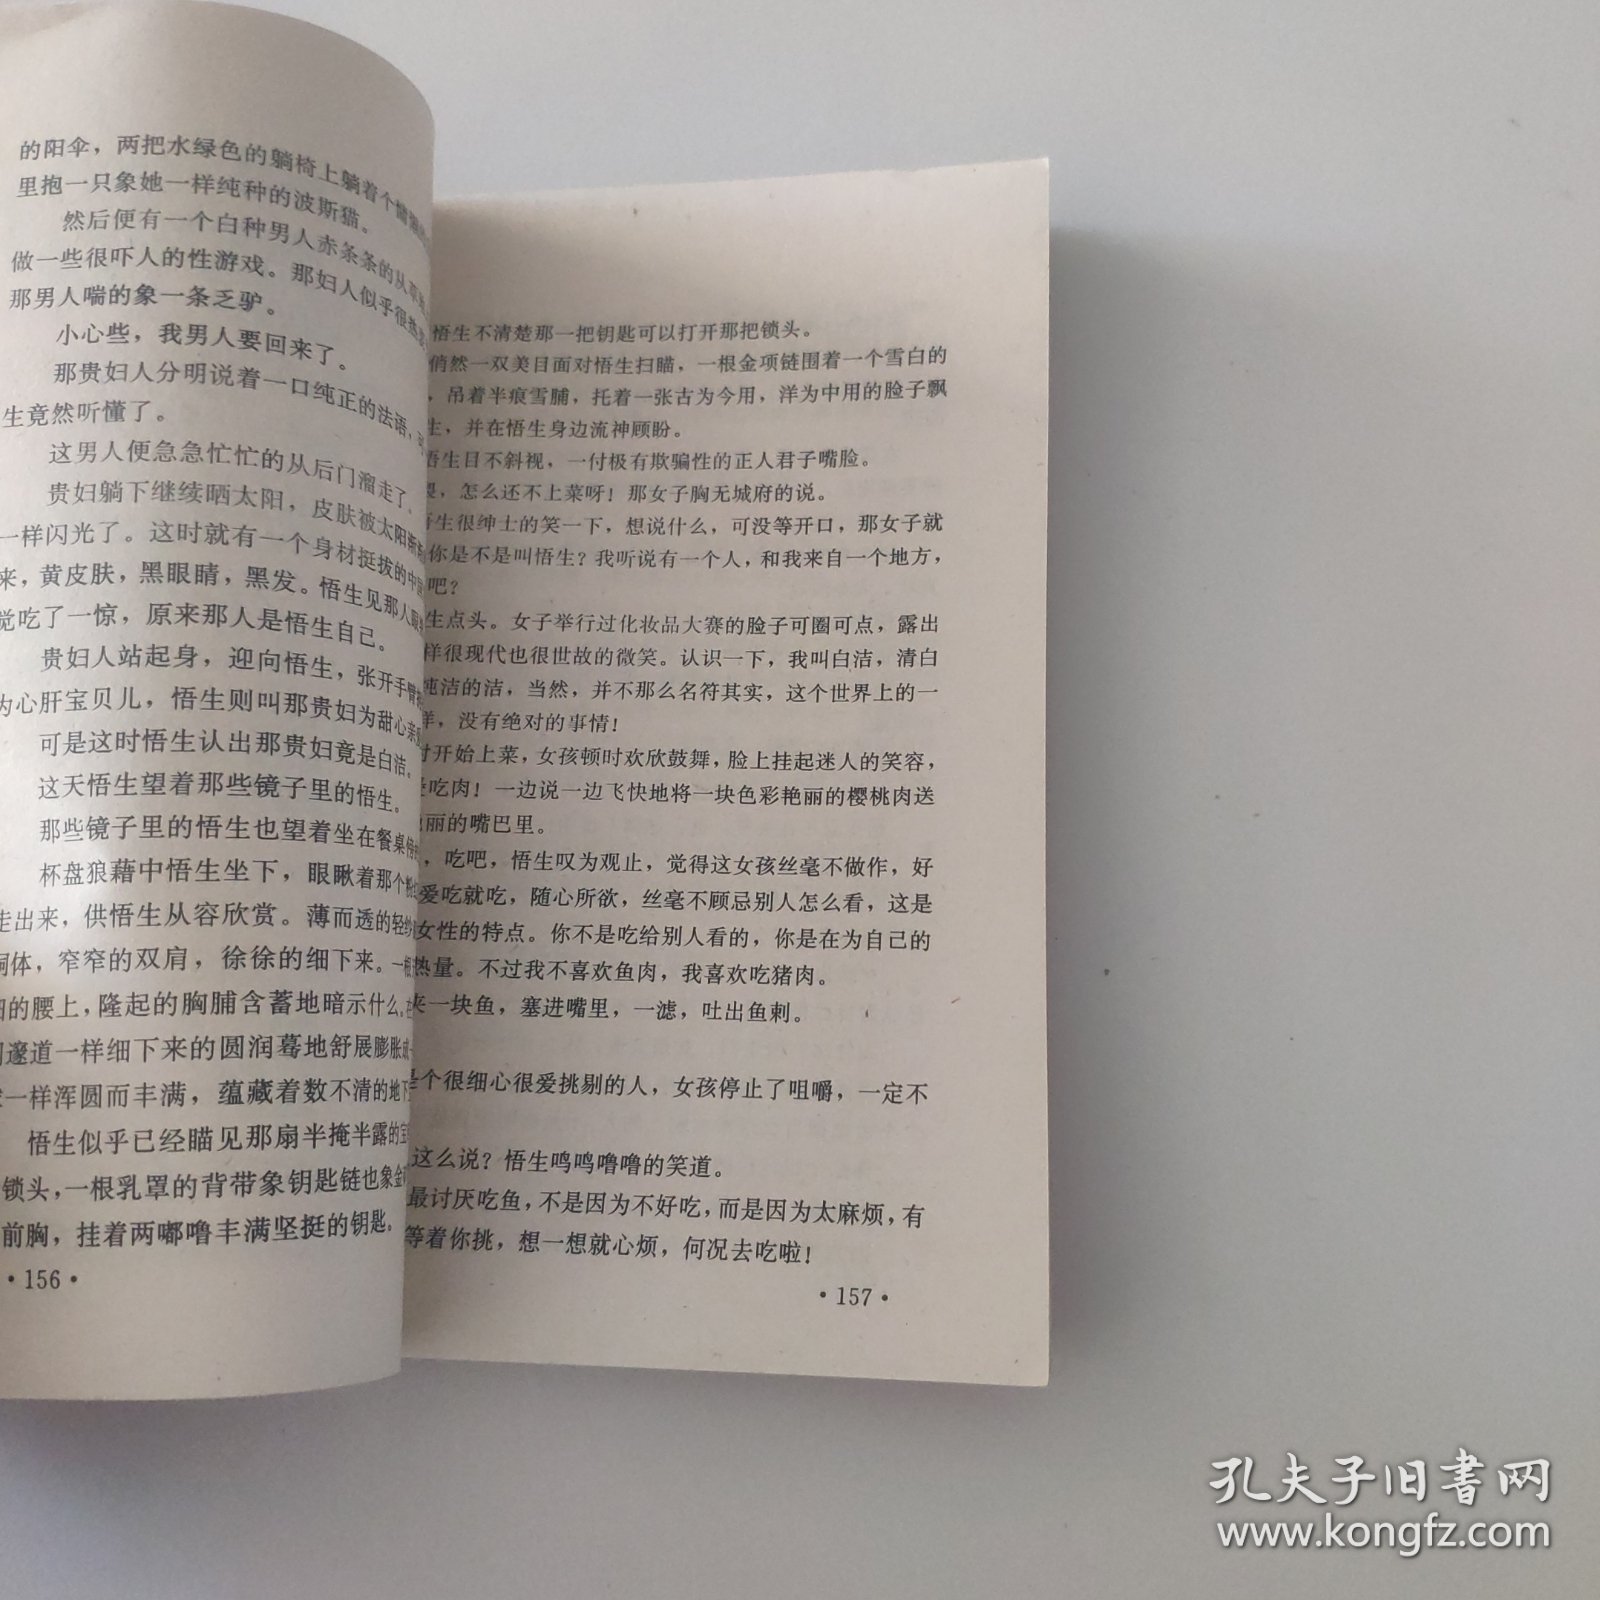 的阳伞，两把水绿色的躺椅上躺着个
里抱一只象她一样纯种的波斯猫。
然后便有一个白种男人赤条条的从
做一些很吓人的性游戏。那妇人似乎很
那男人喘的象一条乏驴。
小心些，我男人要回来了。
那贵妇人分明说着一口纯正的法语，
生竟然听懂了。
这男人便急急忙忙的从后门溜走了。
贵妇躺下继续晒太阳，皮肤被太阳
一样闪光了。这时就有一个身材挺拔的中
来，黄皮肤，黑眼睛，黑发。悟生见那人
觉吃了一惊，原来那人是悟生自己。
贵妇人站起身，迎向悟生，张开手臂
为心肝宝贝儿，悟生则叫那贵妇为甜心亲
可是这时悟生认出那贵妇竟是白洁。
这天悟生望着那些镜子里的悟生。
那些镜子里的悟生也望着坐在餐桌
杯盘狼藉中悟生坐下，眼瞅着那个
走出来，供悟生从容欣赏。薄而透的轻纱
胴体，窄窄的双肩，徐徐的细下来。一根
的腰上，隆起的胸脯含蓄地暗示什么。在
邃道一样细下来的圆润蓦地舒展膨胀成
一样浑圆而丰满，蕴藏着数不清的地下
悟生似乎已经瞄见那扇半掩半露的宝
锁头，一根乳罩的背带象钥匙链也象金
前胸，挂着两嘟噜丰满坚挺的钥匙。
·156·
悟生不清楚那一把钥匙可以打开那把锁头。
俏然一双美目面对悟生扫瞄，一根金项链围着一个雪白的
，吊着半痕雪脯，托着一张古为今用，洋为中用的脸子飘
生，并在悟生身边流神顾盼。
悟生目不斜视，一付极有欺骗性的正人君子嘴脸。
，怎么还不上菜呀！那女子胸无城府的说。
悟生很绅士的笑一下，想说什么，可没等开口，那女子就
你是不是叫悟生？我听说有一个人，和我来自一个地方，
吧？
生点头。女子举行过化妆品大赛的脸子可圈可点，露出
样很现代也很世故的微笑。认识一下，我叫白洁，清白
纯洁的洁，当然，并不那么名符其实，这个世界上的一
样，没有绝对的事情！
时开始上菜，女孩顿时欢欣鼓舞，脸上挂起迷人的笑容，
吃肉！一边说一边飞快地将一块色彩艳丽的樱桃肉送
丽的嘴巴里。
，吃吧，悟生叹为观止，觉得这女孩丝毫不做作，好
爱吃就吃，随心所欲，丝毫不顾忌别人怎么看，这是
女性的特点。你不是吃给别人看的，你是在为自己的
热量。不过我不喜欢鱼肉，我喜欢吃猪肉。
夹一块鱼，塞进嘴里，一滤，吐出鱼刺。
是个很细心很爱挑剔的人，女孩停止了咀嚼，一定不
这么说？悟生鸣鸣噜噜的笑道。
最讨厌吃鱼，不是因为不好吃，而是因为太麻烦，有
等着你挑，想一想就心烦，何况去吃啦！
·157·
孔夫子旧书网
www.kongfz.com